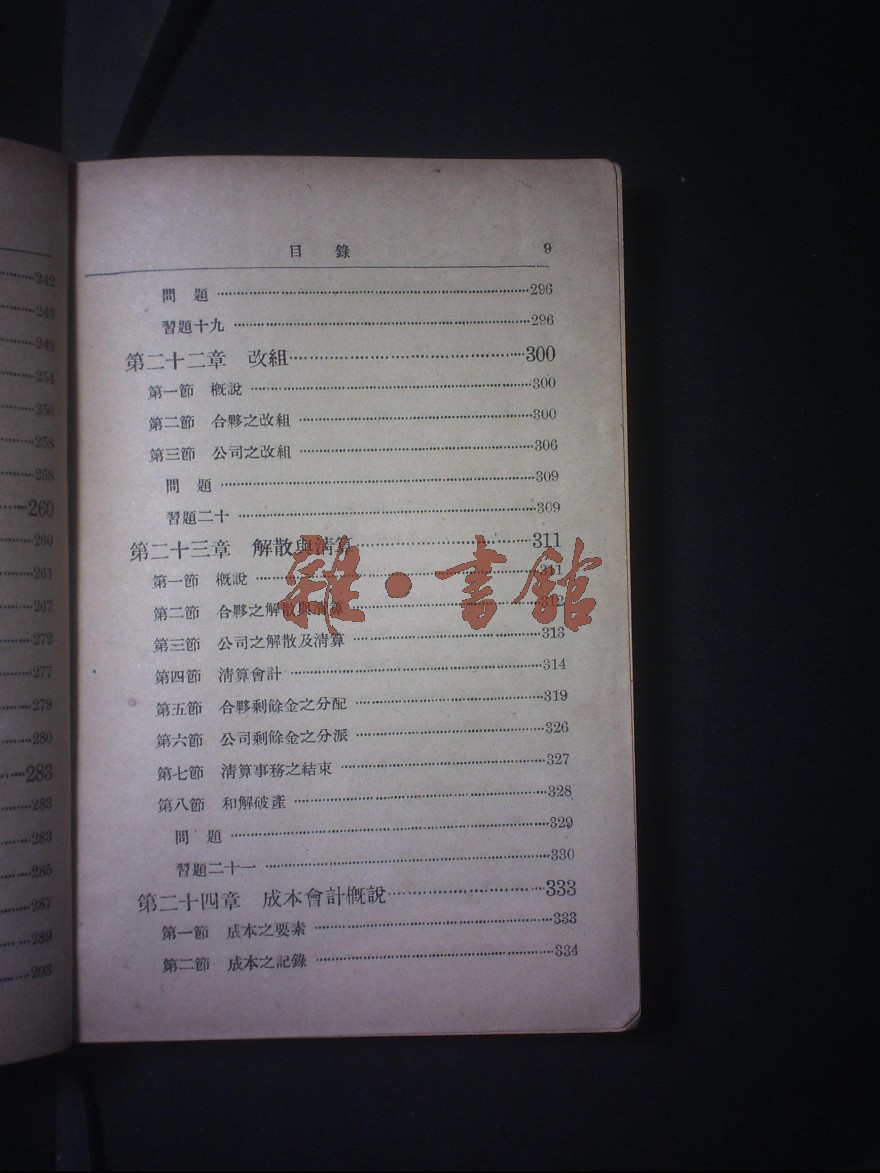 242
243
249
254
256
258
258
260
260
261
267
272
277
279
280
283
283
283
285
287
289
293
目錄 9
問題 296
習題十九 296
第二十二章 改組 300
第一節 概說 300
第二節 合夥之改組 300
第三節 公司之改組 306
問題 309
習題二十 309
第二十三章 解散與清算 311
第一節 概說 311
第二節 合夥之解散與清算 312
第三節 公司之解散及清算 313
第四節 清算會計 314
第五節 合夥剩餘金之分配 319
第六節 公司剩餘金之分派 326
第七節 清算事務之結束 327
第八節 和解破產 328
問題 329
習題二十一 330
第二十四章 成本會計概說 333
第一節 成本之要素 333
第二節 成本之記錄 334
雜·書館